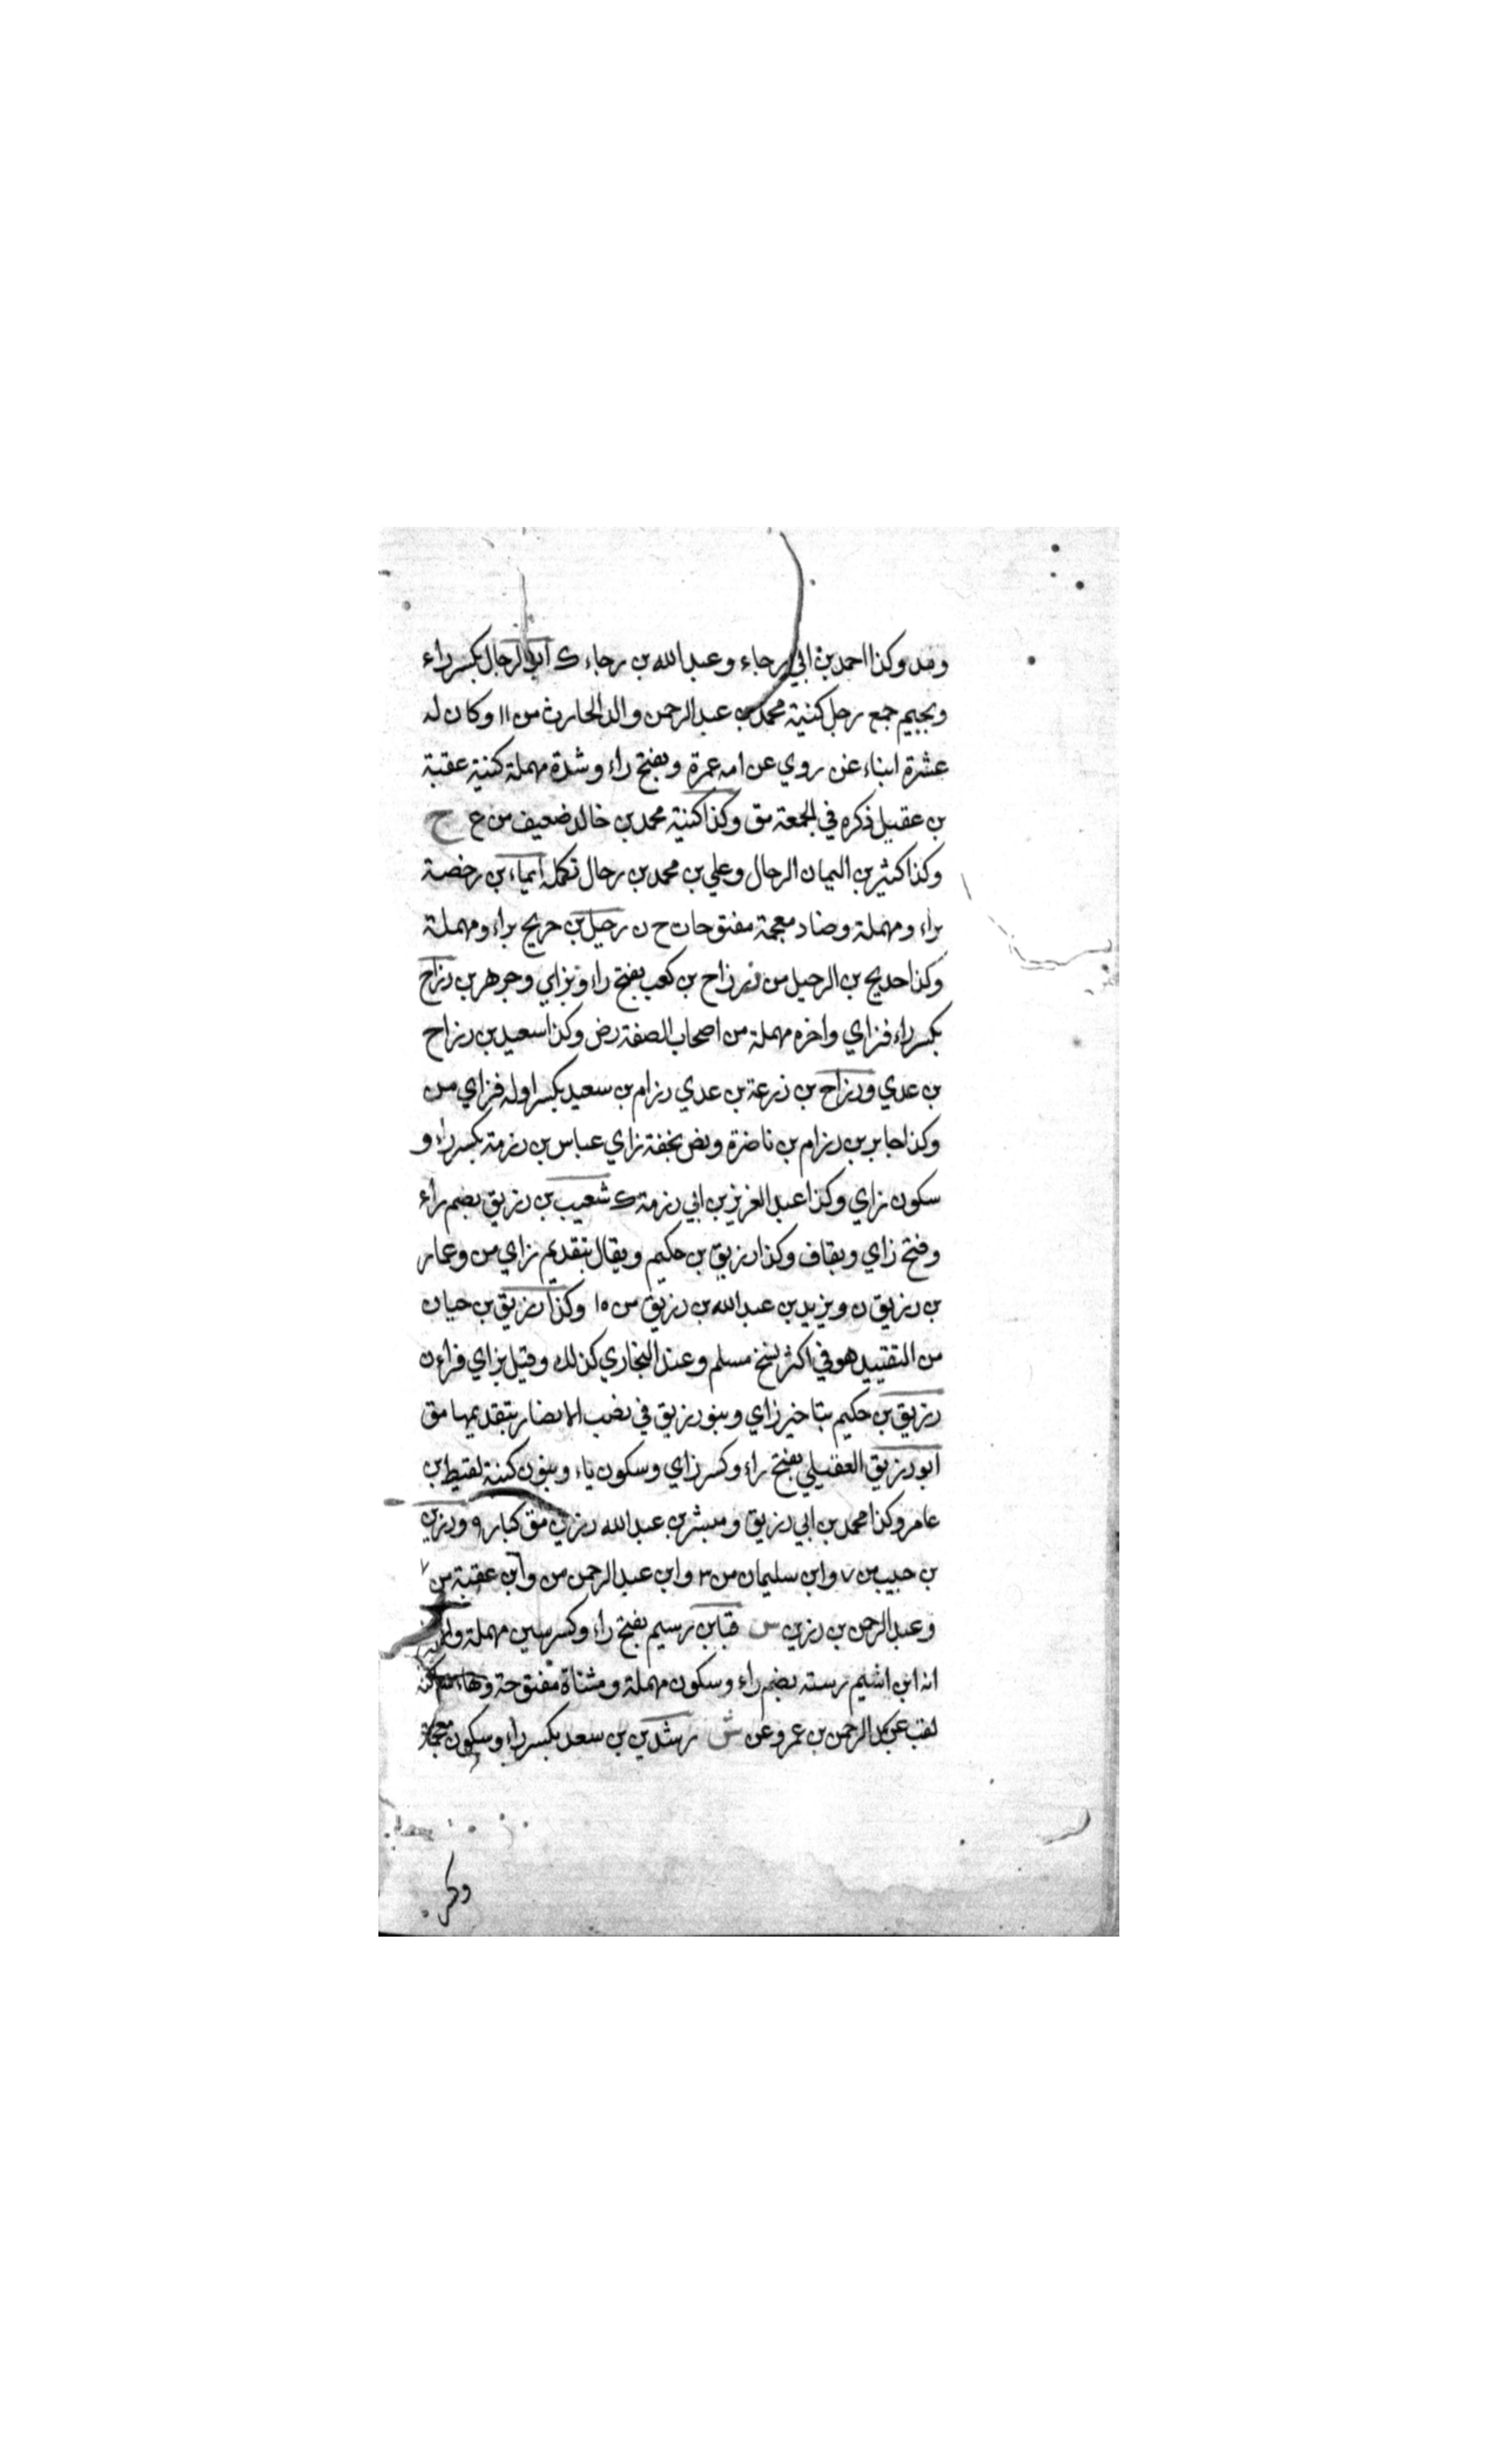 ومد وكذا احمد بن ابي رجاء وعبد الله بن رجاء ك ابو الرجال بكسر راء
وبجيم جمع رجل كنية محمد بن عبد الرحمن والد الحارث من ١١ وكان له
عشرة ابناء عن روي عن امه عمرة وبفتح راء وشدة مهملة كنية عقبة
بن عقيل ذكره في الجمعة مق وكذا كنية محمد بن خالد ضعيف من ع ح
وكذا كثير بن اليمان الرحال وعلي بن محمد بن رحال تكمله ايماء بن رخصة
براء ومهملة وضاد معجمة مفتوحات ح ن رحيل بن حريج براء ومهملة
وكذا حديج بن الرحيل من رزاح بن كعب بفتح راء وبزاي وجوهر بن رزاح
بكسر راء فزاي واخره مهملة من اصحاب الصفة رض وكذا سعيد بن رزاح
بن عدي ورزاح بن زرعة بن عدي رزام بن سعيد بكسر اوله فزاي من
وكذا جابر بن رزام بن ناضرة وبض بخفة زاي عباس بن رزمة بكسر راء و
سكون زاي وكذا عبد العزيز بن ابي رزمة ك شعيب بن رزيق بضم راء
وفتح زاي وبقاف وكذا رزيق بن حكيم ويقال بتقديم زاي من وعمار
بن رزيق ن ويزيد بن عبد الله بن رزيق س ١٥ وكذا رزيق بن حيان
من التقييد هو في اكثر نسخ مسلم وعند البخاري كذلك وقيل بزاي فراء ن
رزيق بن حكيم بتاخير زاي وبنو رزيق في نصب الانصار بتقديمها مق
ابو رزيق العقيلي بفتح راء وكسر زاي وسكون ياء وبنون كنية لقيط بن
عامر وكذا محمد بن ابي رزيق ومبشر بن عبد الله رزين مق كبار ٩ ورزين
بن حبيب من ٧ وابن سليمان من ٣ وابن عبد الرحمن من وابن عقبة من ٧
وعبد الرحمن بن رزين س قباث بن رسيم بفتح راء وكسر سين مهملة
انه ابن اشيم رسته بضم راء وسكون مهملة ومثناة مفتوحة وهاء
لقب عبد الرحمن بن عمر وعن ش رشدين بن سعد بكسر راء وسكون معجمة